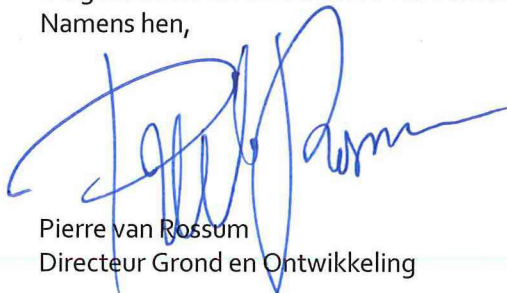 Namens hen,
Pierre van Rossum
Directeur Grond en Ontwikkeling